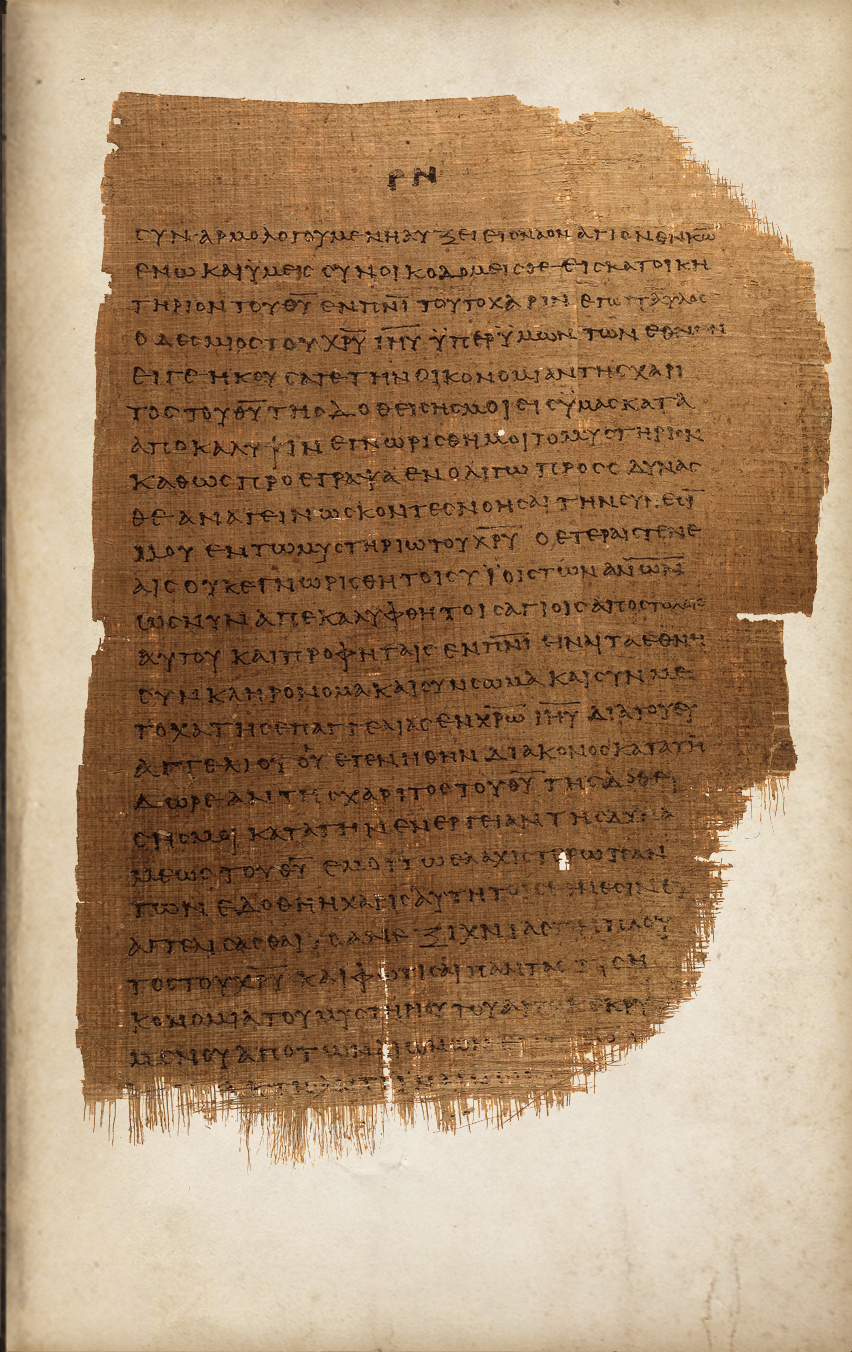 ΡΝ
ϹΥΝΑΡΜΟΛΟΓΟΥΜΕΝΗΑΥΞΕΙΕΙϹΝΑΟΝΑΓΙΟΝΕΝΚ̅Ω̅
ΕΝΩΚΑΙΥΜΕΙϹϹΥΝΟΙΚΟΔΟΜΕΙϹΘΕΕΙϹΚΑΤΟΙΚΗ
ΤΗΡΙΟΝΤΟΥΘ̅Υ̅ΕΝΠ̅Ν̅Ι̅ΤΟΥΤΟΧΑΡΙΝΕΓΩΠΑΥΛΟϹ
ΟΔΕϹΜΙΟϹΤΟΥΧ̅Ρ̅Υ̅Ι̅Η̅Υ̅ΫΠΕΡΫΜΩΝΤΩΝΕΘΝΩΝ
ΕΙΓΕΗΚΟΥϹΑΤΕΤΗΝΟΙΚΟΝΟΜΙΑΝΤΗϹΧΑΡΙ
ΤΟϹΤΟΥΘ̅Υ̅ΤΗϹΔΟΘΕΙϹΗϹΜΟΙΕΙϹΥΜΑϹΚΑΤΑ
ΑΠΟΚΑΛΥΨΙΝΕΓΝΩΡΙϹΘΗΜΟΙΤΟΜΥϹΤΗΡΙΟΝ
ΚΑΘΩϹΠΡΟΕΓΡΑΨΑΕΝΟΛΙΓΩΠΡΟϹΟΔΥΝΑϹ
ΘΕΑΝΑΓΕΙΝΩϹΚΟΝΤΕϹΝΟΗϹΑΙΤΗΝϹΥΝΕϹΙ̅
ΜΟΥΕΝΤΩΜΥϹΤΗΡΙΩΤΟΥΧ̅Ρ̅Υ̅ ΟΕΤΕΡΑΙϹΓΕΝΕ
ΑΙϹΟΥΚΕΓΝΩΡΙϹΘΗΤΟΙϹΥΪΟΙϹΤΩΝΑ̅Ν̅Ω̅Ν̅
ΩϹΝΥΝΑΠΕΚΑΛΥΦΘΗΤΟΙϹΑΓΙΟΙϹΑΠΟϹΤΟΛΟΙϹ
ΑΥΤΟΥΚΑΙΠΡΟΦΗΤΑΙϹΕΝΠ̅Ν̅Ι̅ΕΙΝΑΙΤΑΕΘΝΗ
ϹΥΝΚΛΗΡΟΝΟΜΑΚΑΙϹΥΝϹΩΜΑΚΑΙϹΥΝΜΕ
ΤΟΧΑΤΗϹΕΠΑΓΓΕΛΙΑϹΕΝΧ̅Ρ̅Ω̅Ι̅Η̅Υ̅ΔΙΑΤΟΥΕΥ
ΑΓΓΕΛΙΟΥΟΥΕΓΕΝΗΘΗΝΔΙΑΚΟΝΟϹΚΑΤΑΤΗ̅
ΔΩΡΕΑΝΤΗϹΧΑΡΙΤΟϹΤΟΥΘ̅Υ̅ΤΗϹΔΟΘΕΙ
ϹΗϹΜΟΙΚΑΤΑΤΗΝΕΝΕΡΓΕΙΑΝΤΗϹΔΥΝΑ
ΜΕΩϹΤΟΥΘ̅Υ̅ ΕΜΟΙΤΩΕΛΑΧΙϹΤΕΡΩΠΑΝ
ΤΩΝΕΔΟΘΗΗΧΑΡΙϹΑΥΤΗΤΟΙϹΕΘΝΕϹΙΝΕΥ
ΑΓΓΕΛΙϹΑϹΘΑΙΤΟΑΝΕΞΙΧΝΙΑϹΤΟΝΠΛΟΥ
ΤΟϹΤΟΥΧ̅Ρ̅Υ̅ΚΑΙΦΩΤΙϹΑΙΠΑΝΤΑϹΤΙϹΗ
ΚΟΝΟΜΙΑΤΟΥΜΥϹΤΗΡΙΟΥΤΟΥΑΠΟΚΕΚΡΥ
ΜΕΝΟΥΑΠΟΤΩΝΑΙΩΝΩΝ